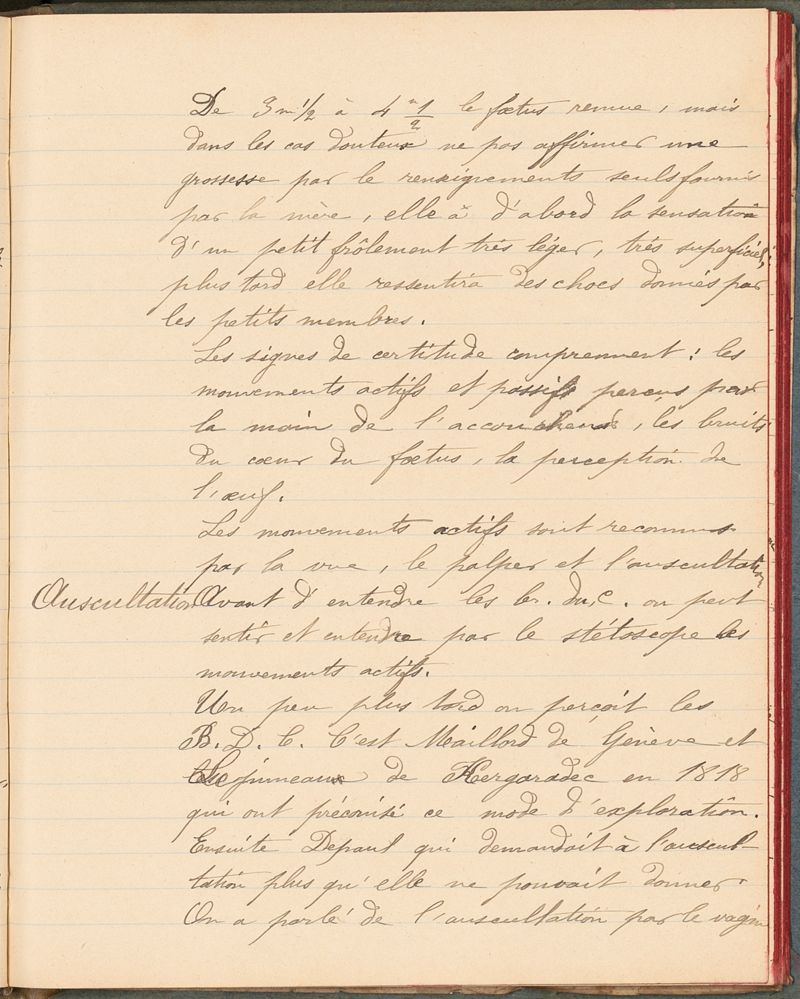 De 3 m 1/2 à 4 m 1/2 le fœtus remue, mais
dans les cas douteux ne pas affirmer une
grossesse par le renseignements seuls fournis
par la mère, elle à d'abord la sensation
d'un petit frôlement très léger, très superficiel,
plus tard elle ressentira des chocs donnés par
les petits membres.
Les signes de certitude comprennent : les
mouvements actifs et passifs perçus par
la main de l'accoucheur, les bruits
du cœur du fœtus, la perception de
l'œuf.
Les mouvements actifs sont reconnus
par la vue, le palper et l'auscultation
Auscultation Avant d'entendre les br. du c. on peut
sentir et entendre par le stétoscope les
mouvements actifs.
Un peu plus tard on perçoit les
B. D. C. C'est Maillord de Genève et
Lejumeaux de Kergaradec en 1818
qui ont préconisé ce mode d'exploration.
Ensuite Depaul qui demandait à l'auscul-
tation plus qu'elle ne pouvait donner.
On a parlé de l'auscultation par le vagin